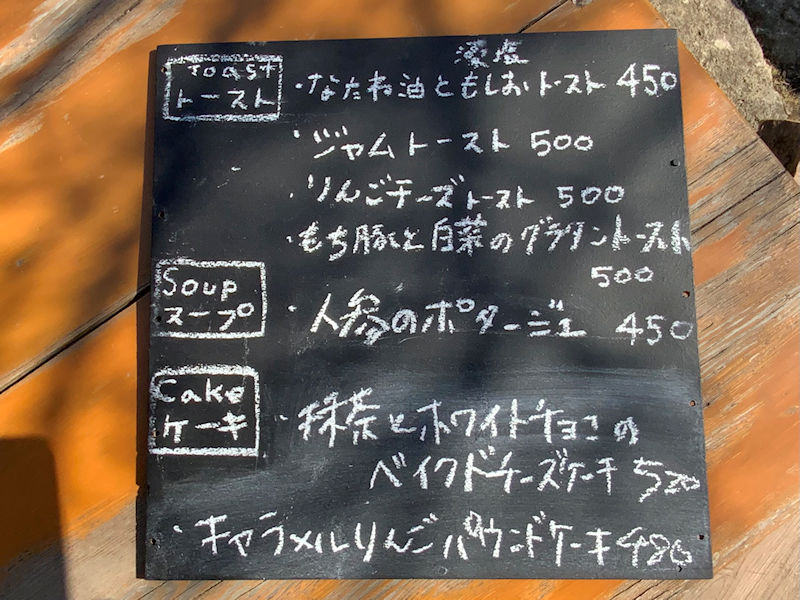 TOAST
トースト
藻塩
・なたね油ともしおトースト 450
・ジャムトースト 500
・りんごチーズトースト 500
・もち豚と白菜のグラタントースト
500
Soup
スープ
・人参のポタージュ 450
Cake
ケーキ
・抹茶とホワイトチョコの
ベイクドチーズケーキ 520
・キャラメルりんごパウンドケーキ 480